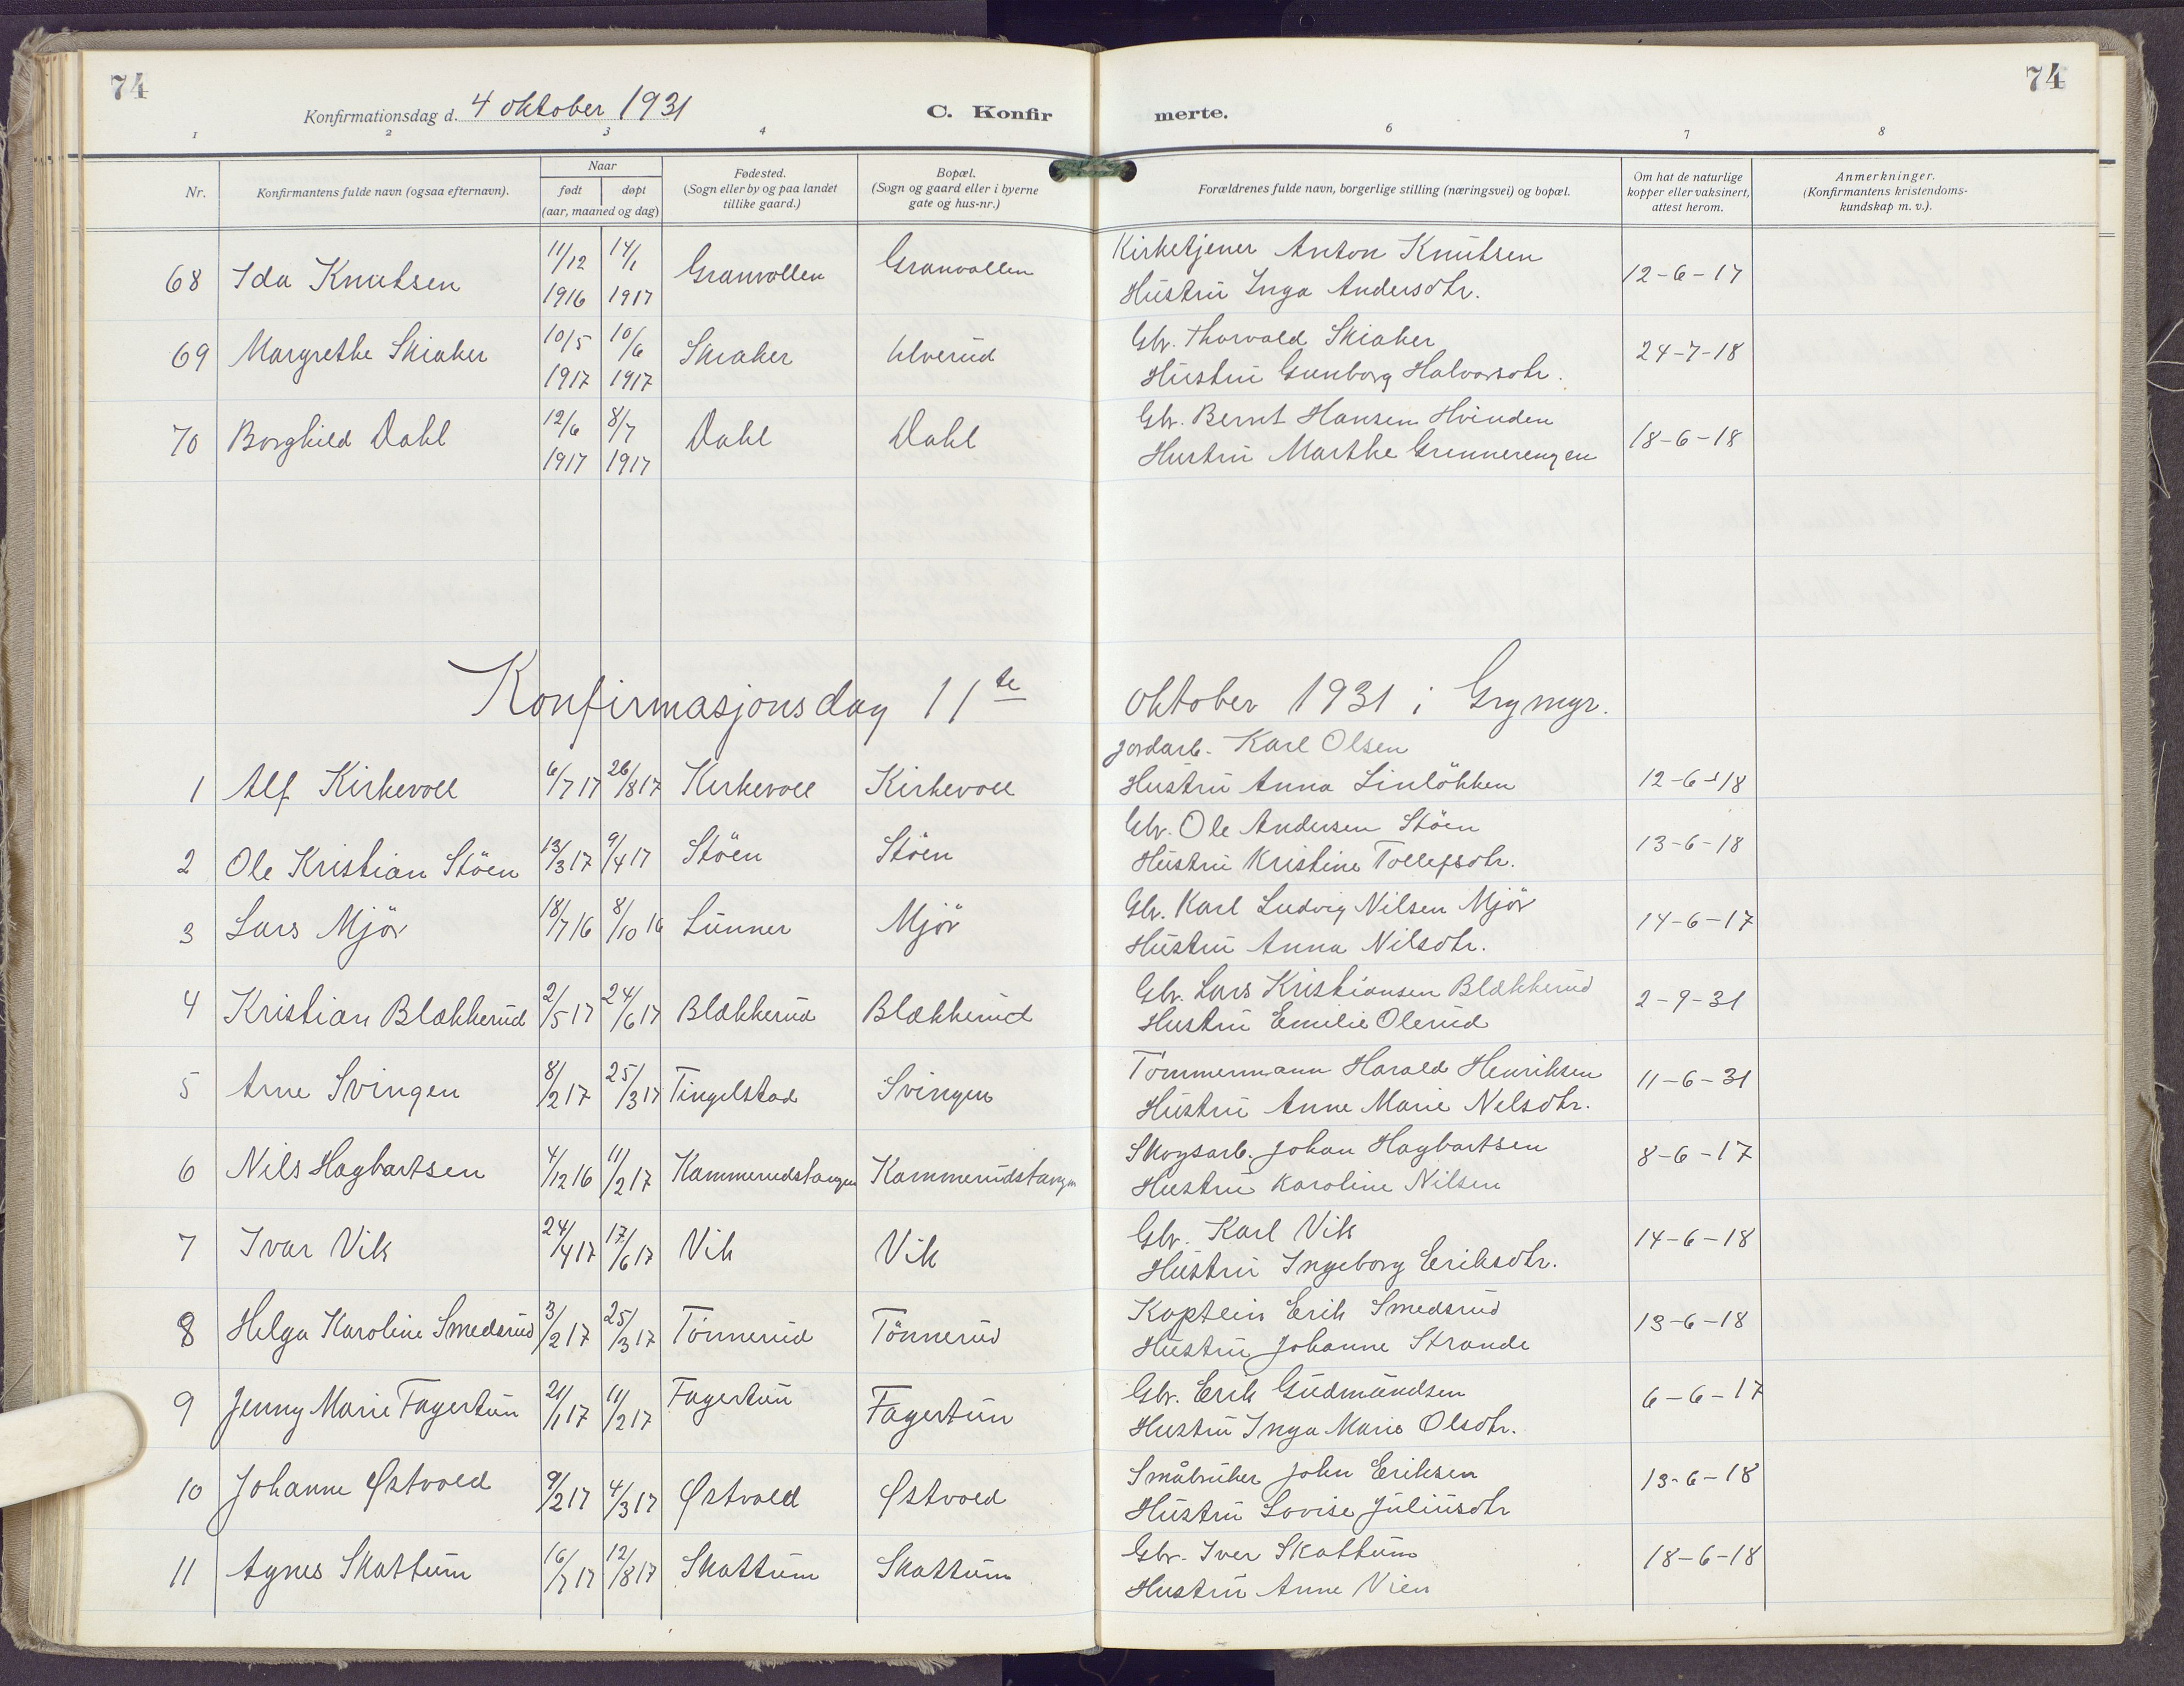 74
74
Konfirmationsdag d. 4 oktober 1931
C. Konfir merte.
1 2 3 4 6 7 8
Nr.
Konfirmantens fulde navn (ogsaa efternavn).
Naar
født døpt
(aar, maaned og dag)
Fødested.
(Sogn eller by og paa landet
tillike gaard.)
Bopæl.
(Sogn og gaard eller i byerne
gate og hus-nr.)
Forældrenes fulde navn, borgerlige stilling (næringsvei) og bopæl.
Om hat de naturlige
kopper eller vaksinert,
attest herom.
Anmerkninger.
(Konfirmantens kristendoms-
kundskap m. v.).
68 Ida Knutsen 11/12 1916 14/1 1917 Granvollen Granvollen Kirketjener Anton Knutsen 12-6-17
Hustru Inga Andersdtr.
69 Margrethe Skiaker 10/5 1917 10/6 1917 Skiaker Ulverud Gbr. Thorvald Skiaker 24-7-18
Hustru Gunborg Halvorsdtr.
70 Borghild Dahl 12/6 1917 8/7 1917 Dahl Dahl Gbr. Bernt Hansen Hvinden 18-6-18
Hustru Marthe Grinnerengen
Konfirmasjonsdag 11te oktober 1931 i Grymyr.
1 Alf Kirkevoll 6/7 17 26/8 17 Kirkevoll Kirkevoll Jordarb. Karl Olsen 12-6-18
Hustru Anna Linløkken
2 Ole Kristian Stöen 13/3 17 9/4 17 Stöen Stöen Gbr. Ole Andersen Stöen 13-6-18
Hustru Kristine Tollefsdtr.
3 Lars Mjör 18/7 16 8/10 16 Lunner Mjör Gbr. Karl Ludvig Nilsen Mjör 14-6-17
Hustru Anna Nilsdtr.
4 Kristian Blækkerud 2/5 17 24/6 17 Blækkerud Blækkerud Gbr. Lars Kristiansen Blækkerud 2-9-31
Hustru Emilie Olerud
5 Arne Svingen 8/2 17 25/3 17 Tingelstad Svingen Tömmermann Harald Henriksen 11-6-31
Hustru Anne Marie Nelsdtr.
6 Nils Hagbartsen 4/12 16 11/2 17 Kammerudstangen Kammerudstangen Skogsarb. Johan Hagbartsen 8-6-17
Hustru Karoline Nilsen
7 Ivar Vik 24/4 17 17/6 17 Vik Vik Gbr. Karl Vik 14-6-18
Hustru Ingeborg Eriksdtr.
8 Helga Karoline Smedsrud 3/2 17 25/3 17 Tönnerud Tönnerud Kaptein Erik Smedsrud 13-6-18
Hustru Johanne Strande
9 Jenny Marie Fagertun 21/1 17 11/2 17 Fagertun Fagertun Gbr. Erik Gudmundsen 6-6-17
Hustru Inga Marie Olsdtr.
10 Johanne Østvold 9/2 17 4/3 17 Østvold Østvold Småbruker John Eriksen 13-6-18
Hustru Lovise Juliusdtr
11 Agnes Skattum 16/7 17 12/8 17 Skattum Skattum Gbr. Iver Skattum 18-6-18
Hustru Anne Vien